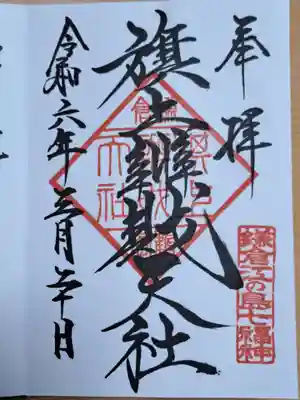 奉拝
鎌倉江の島七福神
旗上辨財天社
令和六年三月二十日